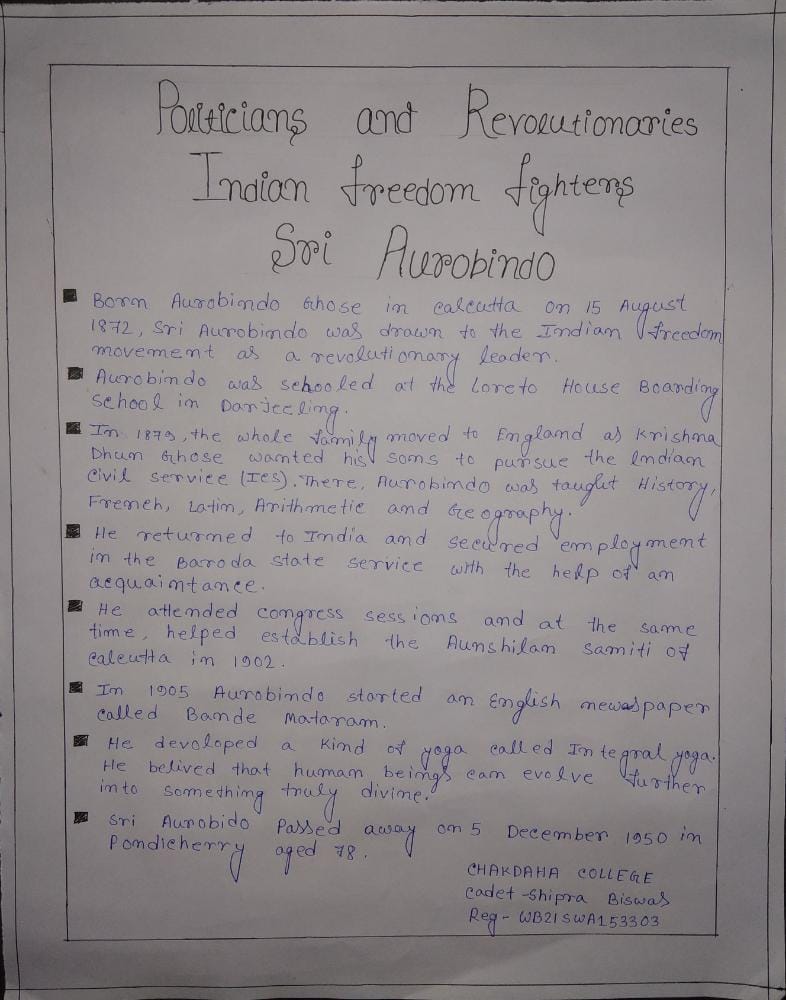 Politicians and Revolutionaries
Indian freedom fighters
Sri Aurobindo
Born Aurobindo Ghose in calcutta on 15 August
1872, Sri Aurobindo was drawn to the Indian freedom
movement as a revolutionary leader.
Aurobindo was schooled at the Loreto House Boarding
School in Darjeeling.
In 1879, the whole family moved to England as Krishna
Dhun Ghose wanted his sons to pursue the Indian
Civil service (ICS). There, Aurobindo was taught History,
French, Latin, Arithmetic and Geography.
He returned to India and secured employment
in the Baroda state service with the help of an
acquaintance.
He attended congress sessions and at the same
time, helped establish the Aunshilan samiti of
calcutta in 1902.
In 1905 Aurobindo started an English newspaper
called Bande Mataram.
He devoloped a kind of yoga called Integral yoga.
He belived that human beings can evolve further
into something truly divine.
Sri Aurobido Passed away on 5 December 1950 in
Pondicherry aged 78.
CHAKDAHA COLLEGE
cadet - Shipra Biswas
Reg - WB21SWA153303